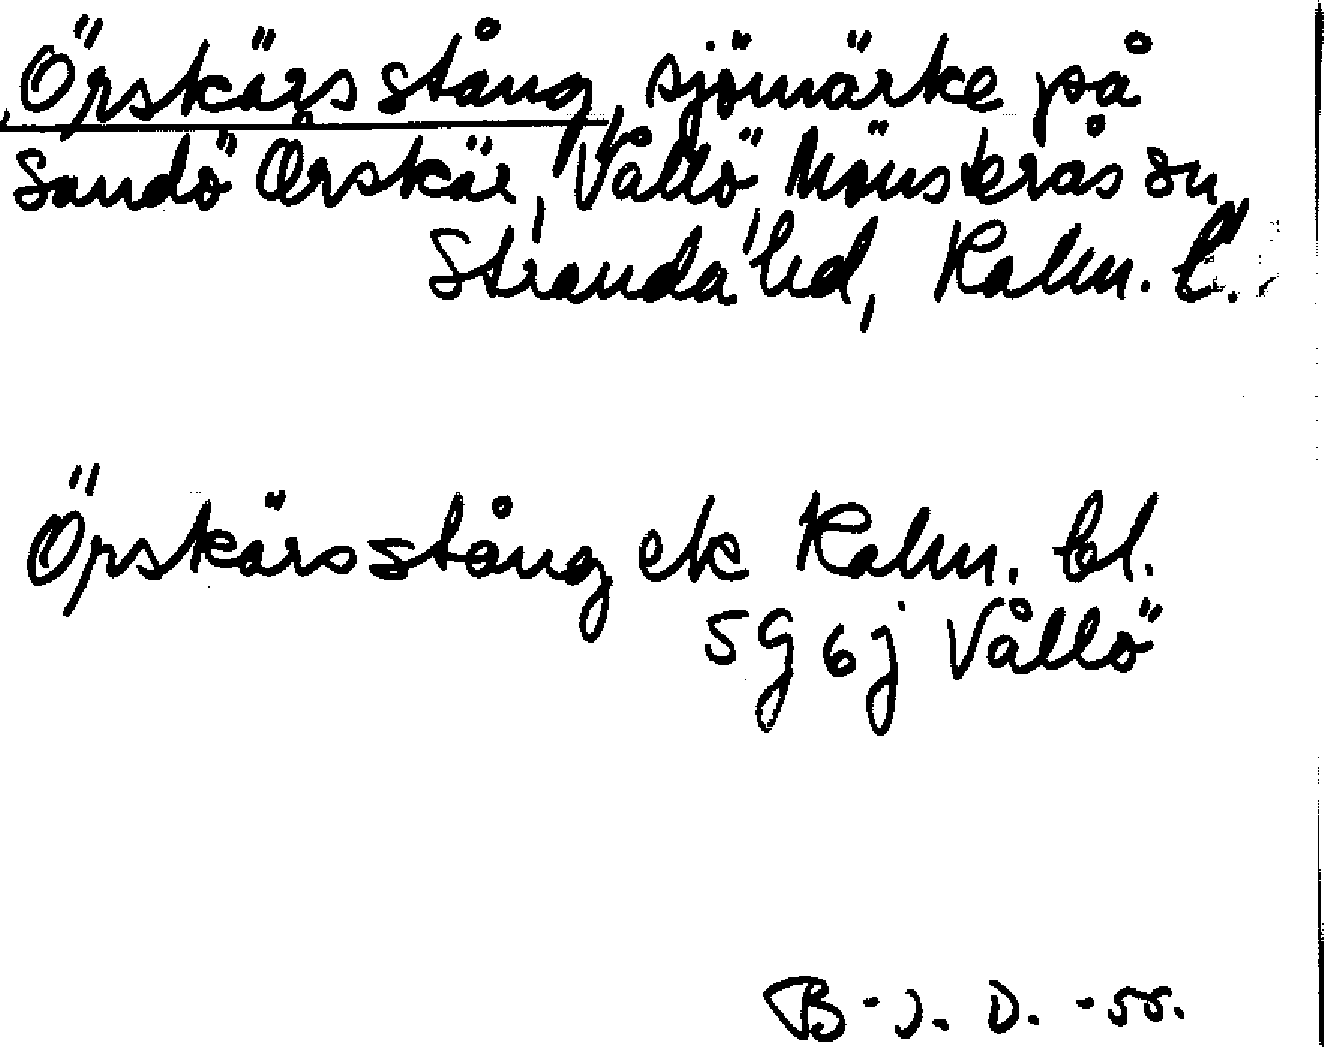 Örskärs stång, sjömärke på
Sandö Örskär, Vållö, Mönsterås sn,
Stranda hd, Kalm. l.
Örskärsstång ek Kalm. bl.
5 G 6 j Vållö
B-J. D. -55.